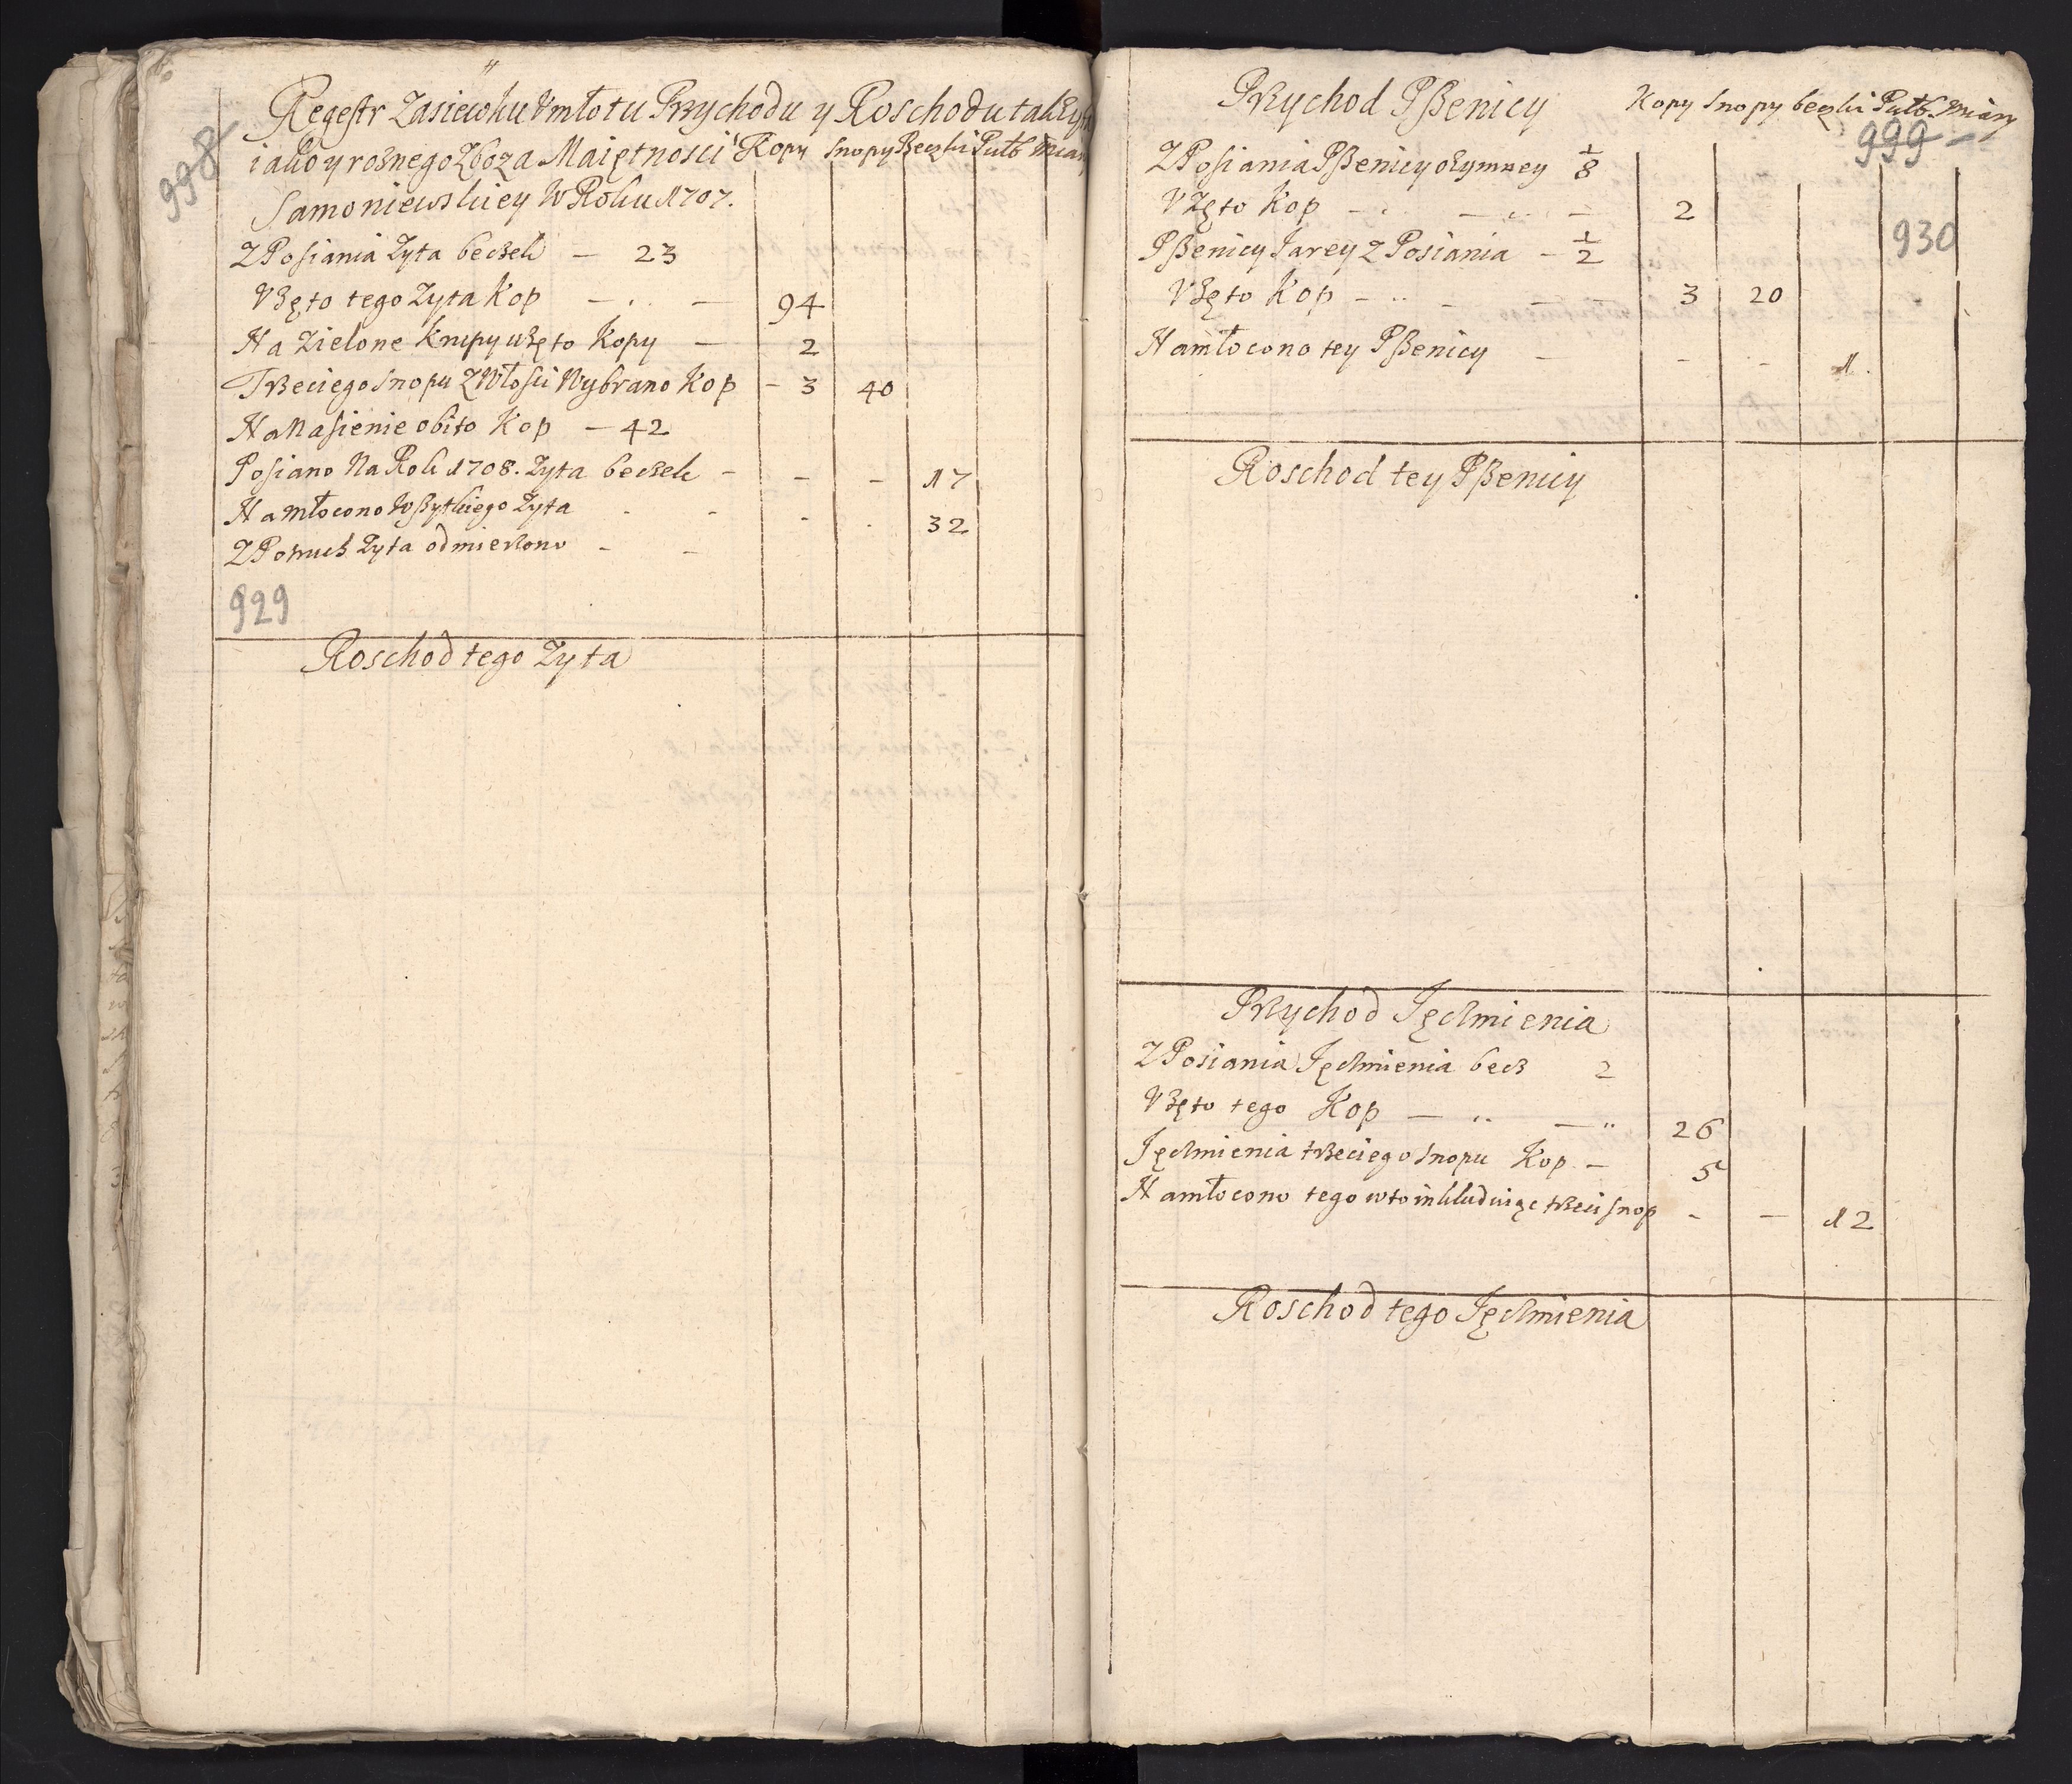 998
Regestr Zasiewku Vmłotu Przychodu y Roschodu tak Zyta
iako y rosnego Zboza Maiętnosci Kopy Snopy Beczki Putb Miary
Samoniewskiey W Roku 1707.
Z Posiania Zyta beczek — 23
Vżęto tego Zyta Kop — 94
Na Zielone krupy użęto Kopy — 2
Trzeciego Snopu Z Włosci Wybrano Kop — 3 40
Na Nasienie obito Kop — 42
Posiano Na Rok 1708. Zyta beczek — — — 17
Namłocono Wßytkiego Zyta - - - . 32
Z Zyta odmierzono — —
929
Roschod tego Zyta
Przychod Pßenicy Kopy Snopy beczki Putb. Miary
999
Z Posiania Pßenicy ozymney 1/8
Vżęto Kop — — — 2
930
Pßenicy Jarey z Posiania — 1/2
Vżęto Kop — — — 3 20
Namłocono tey Pßenicy — - - 1.
Roschod tey Pßenicy
Przychod Jęczmienia
Z Posiania Jęczmienia becz 2
Vżęto tego Kop — — 26
Jęczmienia trzeciego Snopu Kop — 5
Namłocono tego w to inkluduiąc trzeci snop - — 12
Roschod tego Jęczmienia